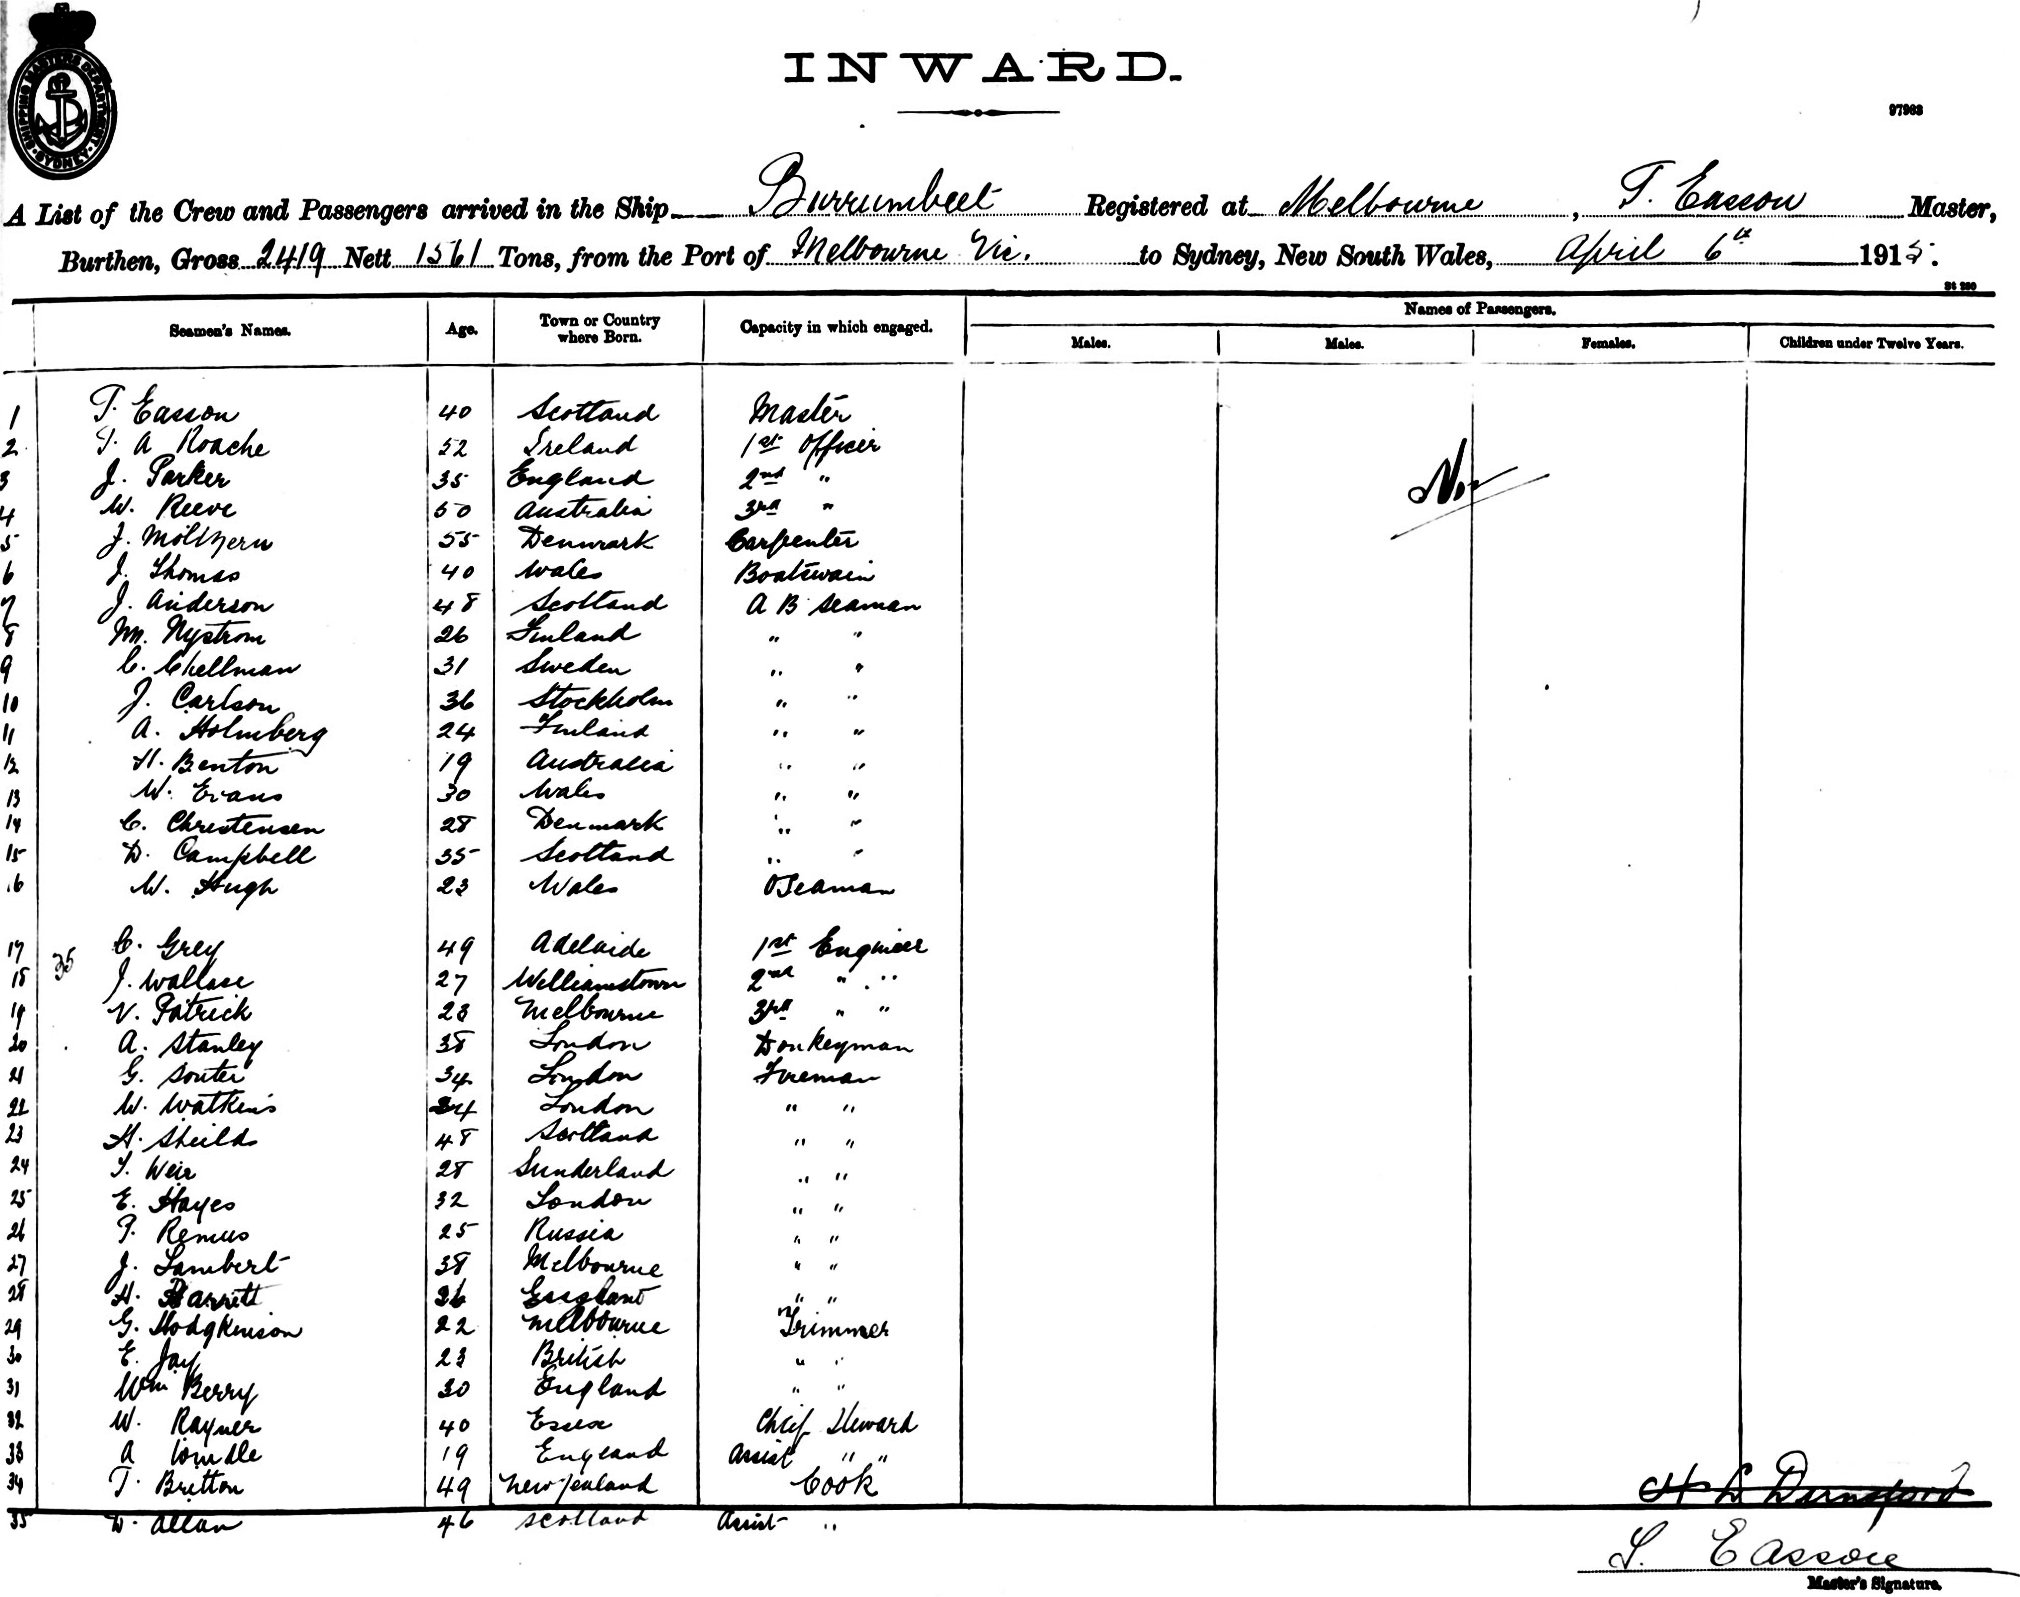 SHIPPING MASTERS DEPARTMENT SYDNEY
INWARD.
97963
A List of the Crew and Passengers arrived in the Ship Burrumbeet Registered at Melbourne, T. Easson Master,
Burthen, Gross 2419 Nett 1561 Tons, from the Port of Melbourne Vic. to Sydney, New South Wales, April 6th 1915.
St 280
Seamen's Names. Age. Town or Country where Born. Capacity in which engaged. Names of Passengers.
Males. Males. Females. Children under Twelve Years.
1 T. Easson 40 Scotland Master
2 T. A Roache 52 Ireland 1st Officer
3 J. Parker 35 England 2nd "
4 W. Reeve 50 Australia 3rd "
5 J. 55 Denmark Carpenter
6 J. Thomas 40 Wales Boatswain
7 J. Anderson 48 Scotland A B Seaman
8 M. Nystrom 26 Finland " "
9 C. Chellman 31 Sweden " "
10 J. Carlson 36 Stockholm " "
11 A. Holmberg 24 Finland " "
12 H. Benton 19 Australia " "
13 W. Evans 30 Wales " "
14 C. Christensen 28 Denmark " "
15 D. Campbell 35 Scotland " "
16 W. Hugh 23 Wales O Seaman
17 C. Grey 49 Adelaide 1st Engineer
35
18 J. Wallace 27 Williamstown 2nd " "
19 V. Patrick 23 Melbourne 3rd " "
20 A. Stanley 38 London Donkeyman
21 G. Souter 34 London Fireman
22 W. Watkins 24 London " "
23 H. Sheilds 48 Scotland " "
24 T. Weir 28 Sunderland " "
25 E. Hayes 32 London " "
26 P. Remus 25 Russia " "
27 J. Lambert 38 Melbourne " "
28 H. Barrett 36 England " "
29 G. Hodgkinson 22 Melbourne Trimmer
30 E. Jay 23 British " "
31 Wm Berry 30 England " "
32 W. Rayner 40 Essex Chief Steward
33 A 19 England Assist " "
34 T. Britton 49 New Zealand Cook
35 D. Allan 46 Scotland Assist "
H L Durnsford
T. Easson
Master's Signature.